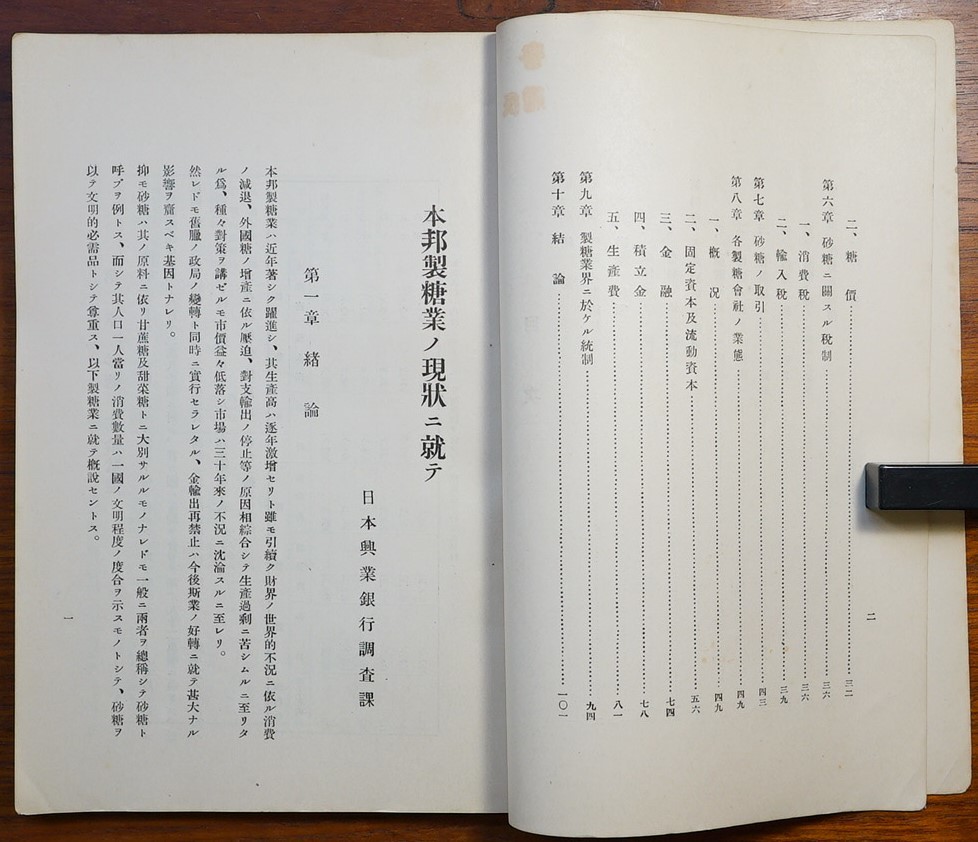 二、糖價……三二
第六章 砂糖ニ關スル稅制……三六
一、消費稅……三六
二、輸入稅……三九
第七章 砂糖ノ取引……四三
第八章 各製糖會社ノ業態……四九
一、概况……四九
二、固定資本及流動資本……五六
三、金融……七四
四、積立金……七八
五、生產費……八一
第九章 製糖業界ニ於ケル統制……九四
第十章 結論……一〇一
二
本邦製糖業ノ現狀ニ就テ
日本興業銀行調査課
第一章 緒論
本邦製糖業ハ近年著シク躍進シ、其生產高ハ逐年激增セリト雖モ引續ク財界ノ世界的不況ニ依ル消費
ノ減退、外國糖ノ增產ニ依ル壓迫、對支輸出ノ停止等ノ原因相綜合シテ生產過剩ニ苦シムルニ至リタ
ル爲、種々對策ヲ講ゼルモ市價益々低落シ市場ハ三十年來ノ不況ニ沈淪スルニ至レリ。
然レドモ舊臘ノ政局ノ變轉ト同時ニ實行セラレタル、金輸出再禁止ハ今後斯業ノ好轉ニ就テ甚大ナル
影響ヲ齎スベキ基因トナレリ。
抑モ砂糖ハ其ノ原料ニ依リ甘蔗糖及甜菜糖トニ大別サルルモノナレドモ一般ニ兩者ヲ總稱シテ砂糖ト
呼ブヲ例トス、而シテ其人口一人當リノ消費數量ハ一國ノ文明程度ノ度合ヲ示スモノトシテ、砂糖ヲ
以テ文明的必需品トシテ尊重ス、以下製糖業ニ就テ概說セントス。
一